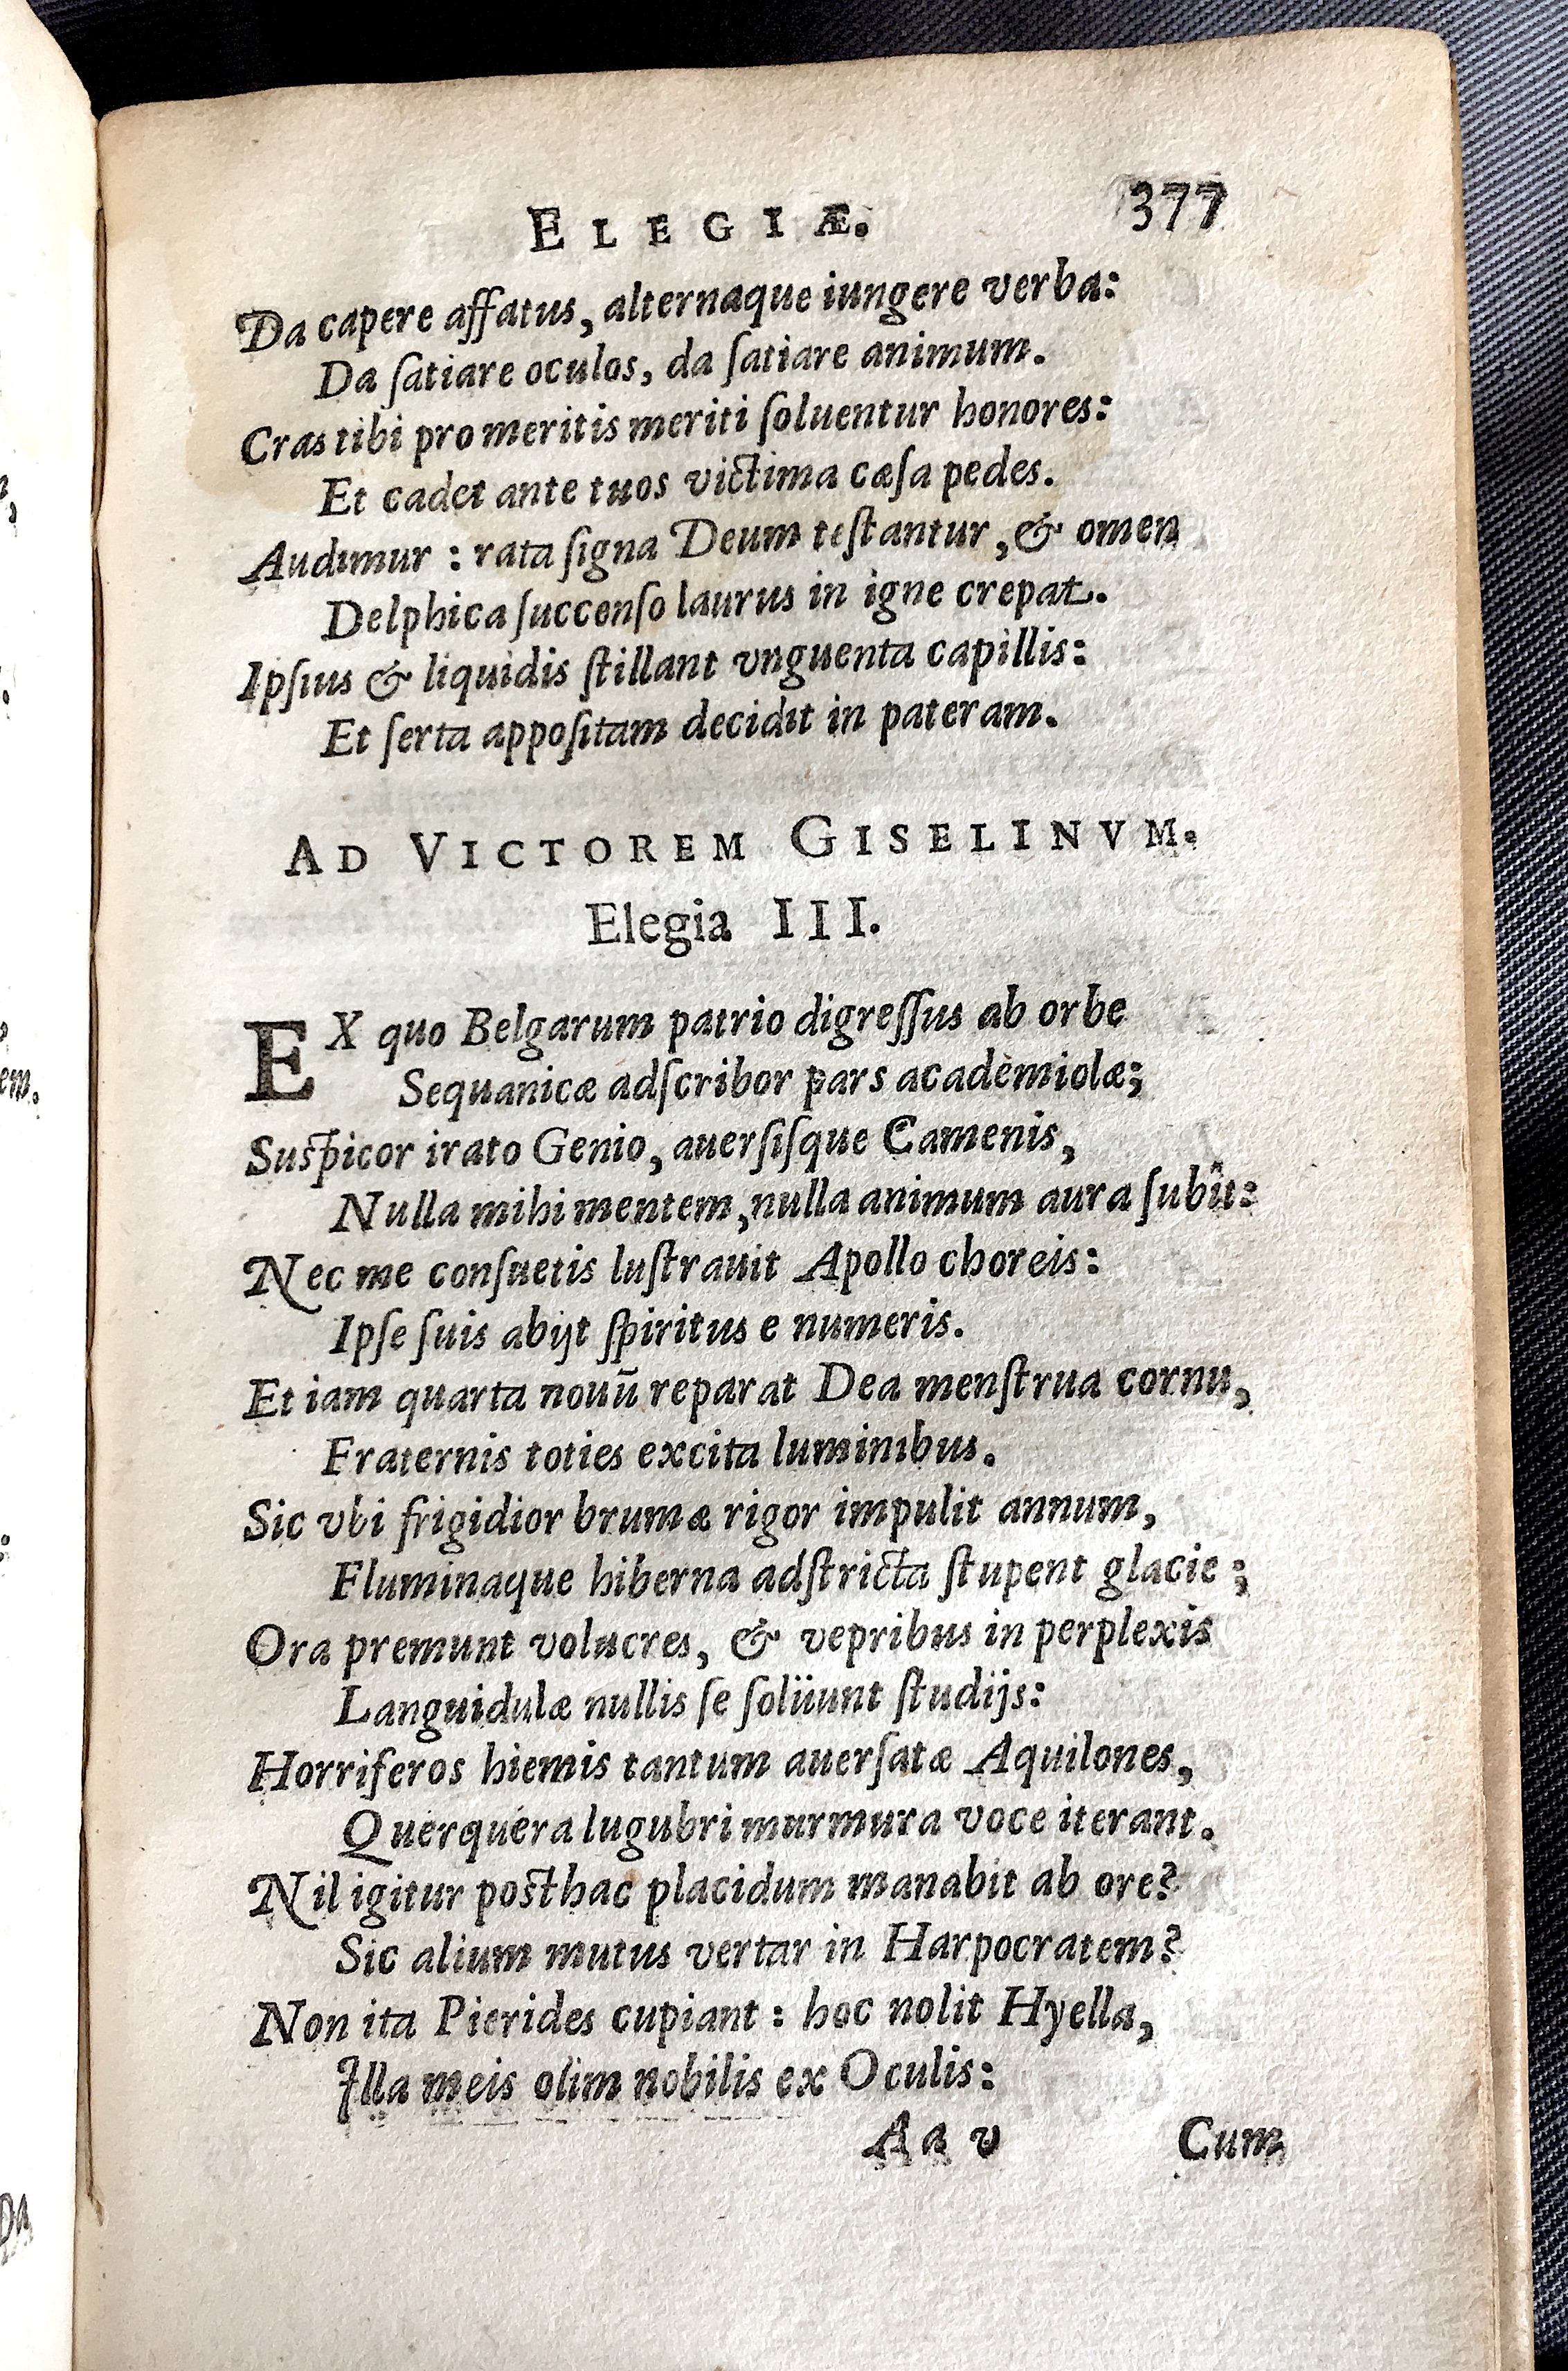 ELEGIÆ. 377
Da capere affatus, alternaque iungere verba:
Da ſatiare oculos, da ſatiare animum.
Cras tibi pro meritis meriti ſoluentur honores:
Et cadet ante tuos victima cæſa pedes.
Audimur : rata ſigna Deum teſtantur, & omen
Delphica ſuccenſo laurus in igne crepat.
Ipſius & liquidis ſtillant vnguenta capillis:
Et ſerta appoſitam decidit in pateram.
AD VICTOREM GISELINVM.
Elegia III.
EX quo Belgarum patrio digreſſus ab orbe
Sequanicæ adſcribor pars academiolæ;
Suſpicor irato Genio, auerſiſque Camenis,
Nulla mihi mentem, nulla animum aura ſubît:
Nec me conſuetis luſtrauit Apollo choreis:
Ipſe ſuis abijt ſpiritus e numeris.
Et iam quarta nouū reparat Dea menſtrua cornu,
Fraternis toties excita luminibus.
Sic vbi frigidior brumæ rigor impulit annum,
Fluminaque hiberna adſtricta ſtupent glacie ;
Ora premunt volucres, & vepribus in perplexis
Languidulæ nullis ſe ſolüunt ſtudijs:
Horriferos hiemis tantum auerſatæ Aquilones,
Querquera lugubri murmura voce iterant.
Nil igitur poſthac placidum manabit ab ore?
Sic alium mutus vertar in Harpocratem?
Non ita Pierides cupiant : hoc nolit Hyella,
Illa meis olim nobilis ex Oculis:
Aa v Cum